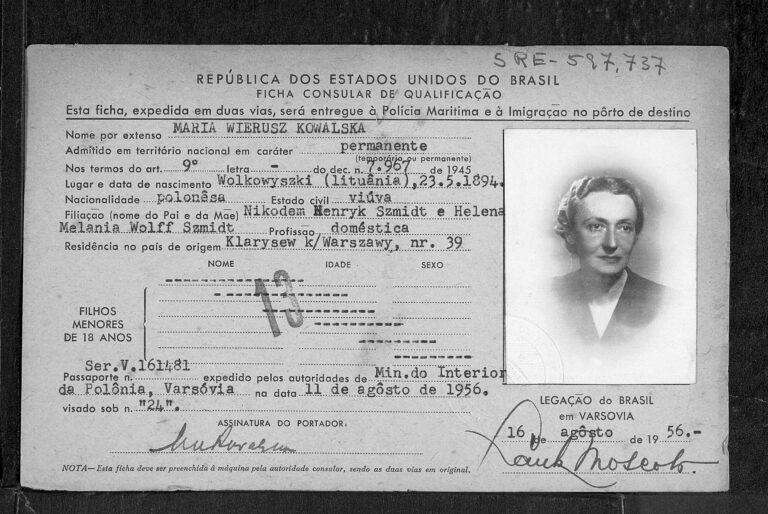 SRE-597,737
REPÚBLICA DOS ESTADOS UNIDOS DO BRASIL
FICHA CONSULAR DE QUALIFICAÇÃO
Esta ficha, expedida em duas vias, será entregue à Polícia Maritima e à Imigração no pôrto de destino
Nome por extenso MARIA WIERUSZ KOWALSKA
Admitido em território nacional em caráter permanente
(temporário ou permanente)
Nos termos do art. 9º letra - do dec. n. 7.967 de 1945
Lugar e data de nascimento Wolkowyszki (lituânia),23.5.1894.
Nacionalidade polonêsa Estado civil viúva
Filiação (nome do Pai e da Mae) Nikodem Henryk Szmidt e Helena
Melania Wolff Szmidt Profissão doméstica
Residência no país de origem Klarysew k/Warszawy, nr. 39
NOME IDADE SEXO
13
FILHOS
MENORES
DE 18 ANOS
Ser.V.161481
Passaporte n. expedido pelas autoridades de Min.do Interior
da Polônia, Varsóvia na data 11 de agôsto de 1956.
visado sob n. "24".
ASSINATURA DO PORTADOR:
LEGAÇÃO do BRASIL
em VARSOVIA
16 de agôsto de 19 56.-
NOTA—Esta ficha deve ser preenchida à máquina pela autoridade consular, sendo as duas vias em original.